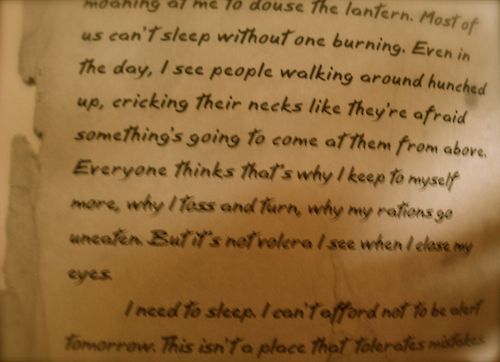 moaning at me to douse the lantern. Most of
us can't sleep without one burning. Even in
the day, I see people walking around hunched
up, cricking their necks like they're afraid
something's going to come at them from above.
Everyone thinks that's why I keep to myself
more, why I toss and turn, why my rations go
uneaten. But it's not volcra I see when I close my
eyes.
I need to sleep. I can't afford not to be alert
tomorrow. This isn't a place that tolerates mistakes